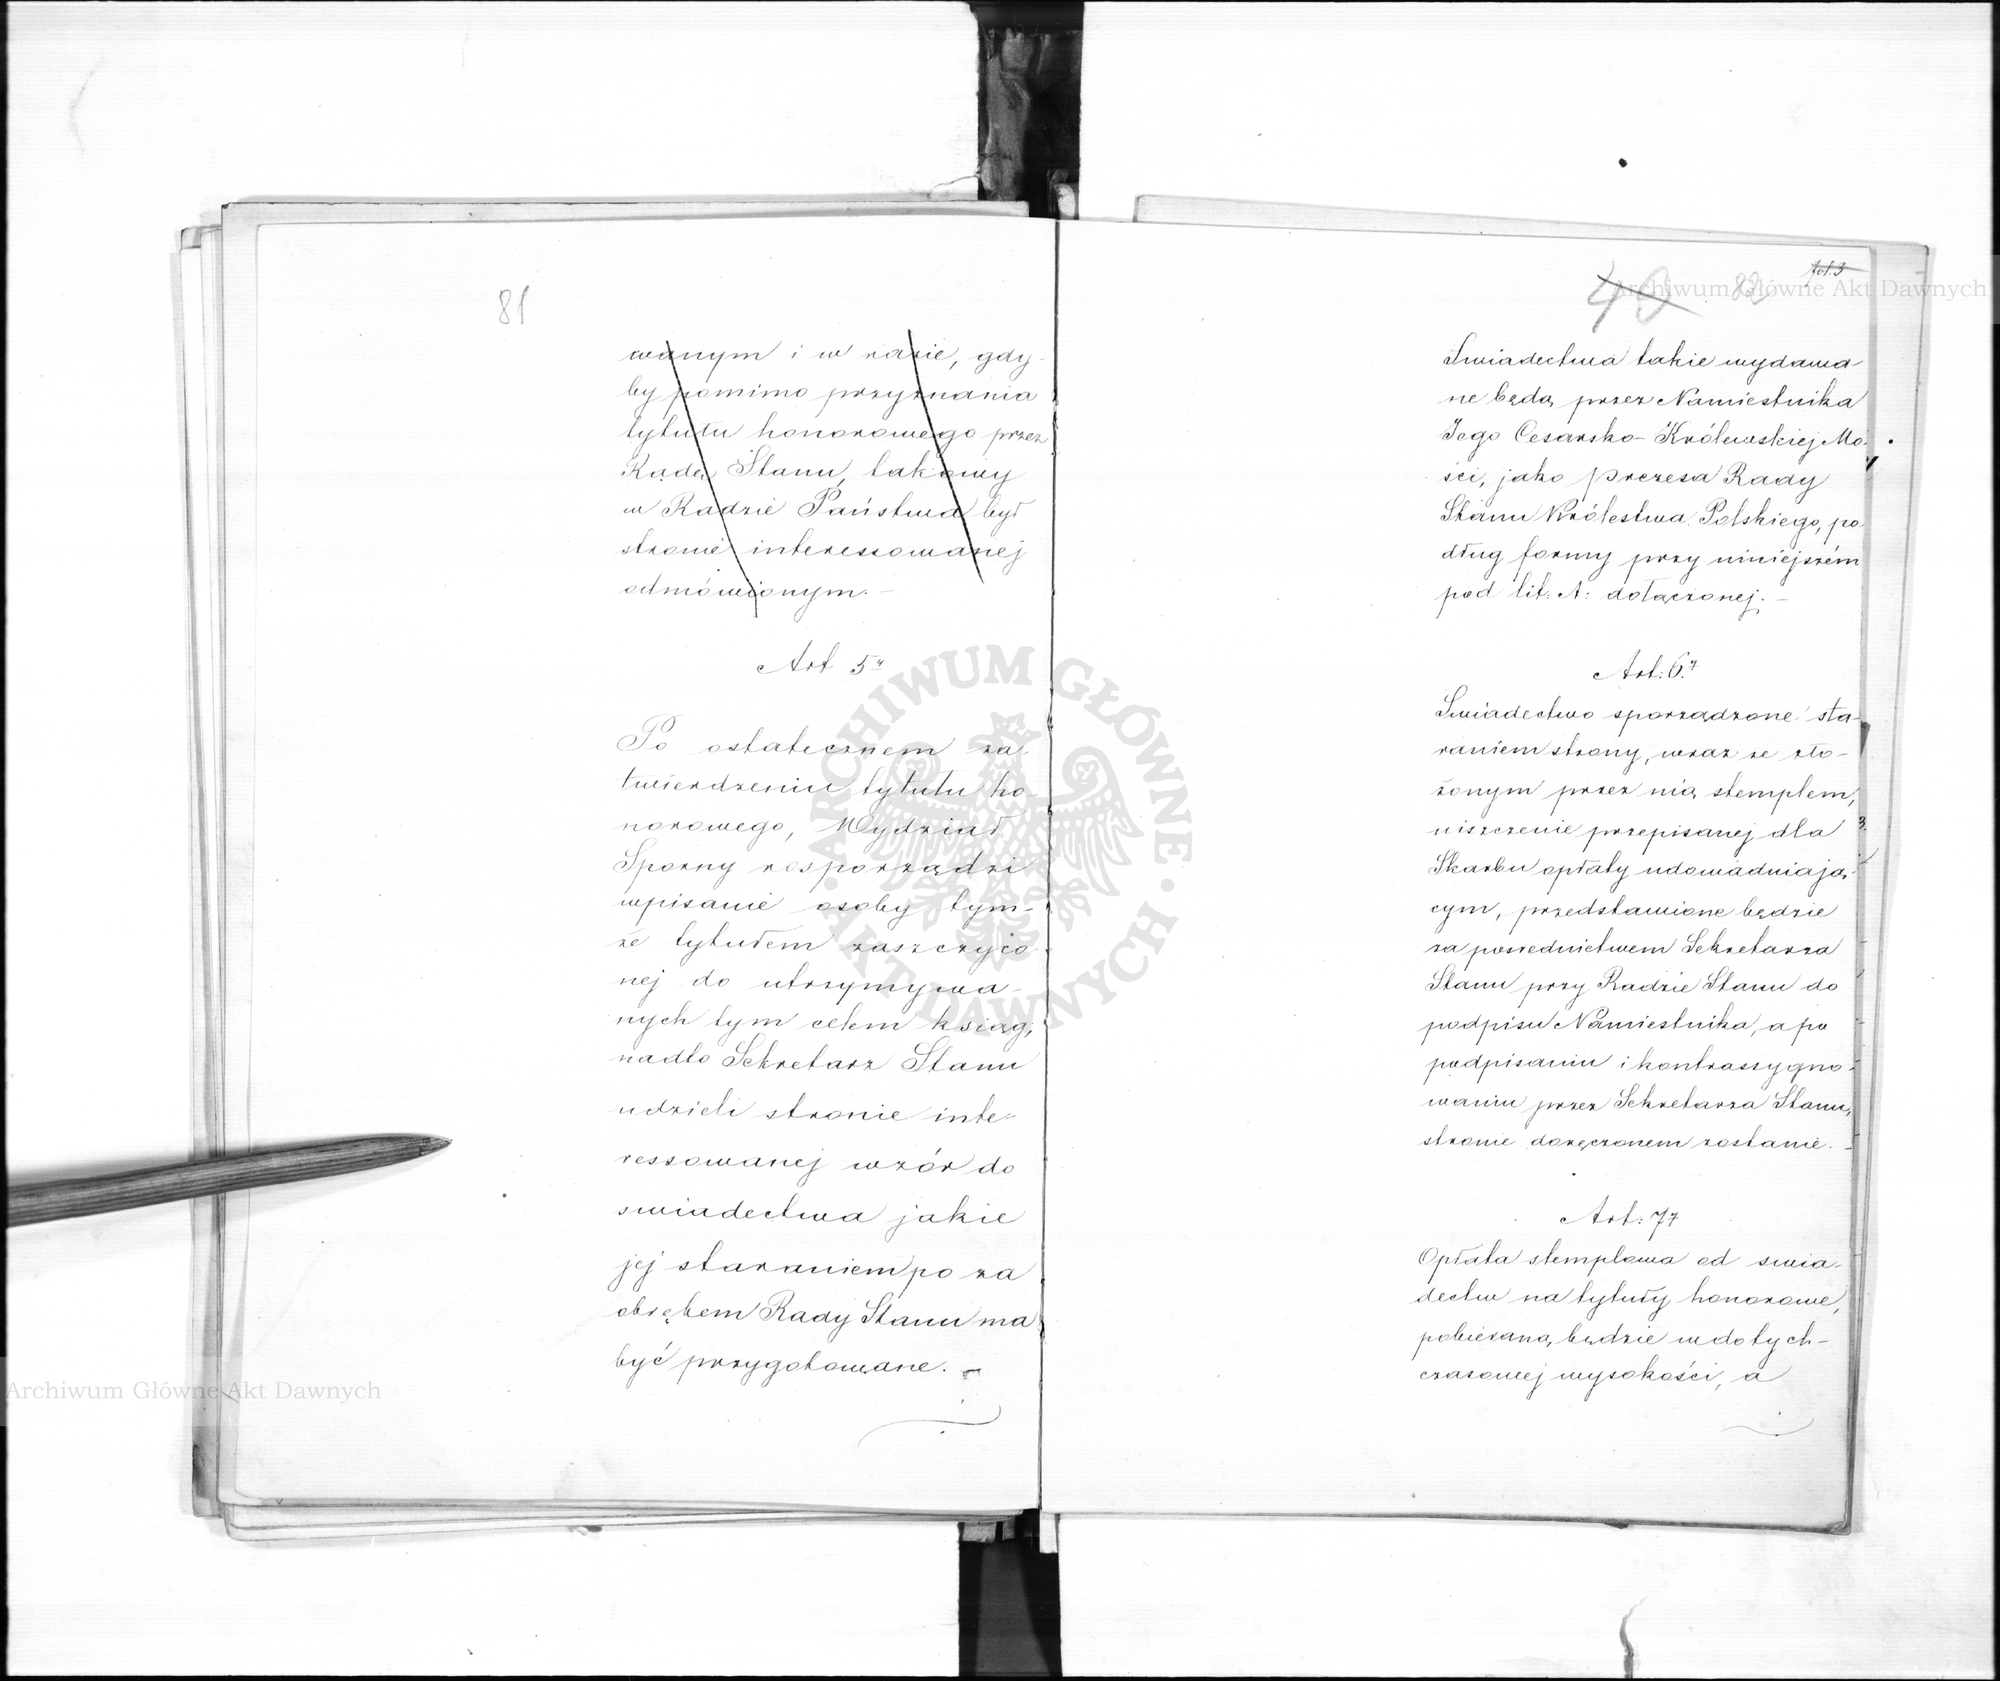 81
wanym i w razie, gdy-
by pomimo przyznania
tytułu honorowego przez
Radę Stanu, takowy
w Radzie Państwa był
stronie interessowanej
odmówionym. –
Art 5y
Po ostatecznem za-
twierdzeniu tytułu ho-
norowego, Wydział
Sporny rosporządzi
wpisanie osoby tym-
że tytułem zaszczyco-
nej do utrzymywa-
nych tym celem ksiąg;
nadto Sekretarz Stanu
udzieli stronie inte-
ressowanej wzór do
swiadectwa jakie
jej staraniem po za
obrębem Rady Stanu ma
być przygotowane. –
fol. 3
40 82
Swiadectwa takie wydawa-
ne będą przez Namiestnika
Jego Cesarsko-Królewskiej Mo-
ści, jako prezesa Rady
Stanu Królestwa Polskiego, po-
dług formy przy niniejszém
pod lit: A: dołączonej. –
Art: 6y
Swiadectwo sporządzone sta-
raniem strony, wraz ze zło-
żonym przez nią stemplem,
uiszczenie przepisanej dla
Skarbu opłaty udowadniają-
cym, przedstawione będzie
za posrednictwem Sekretarza
Stanu przy Radzie Stanu do
podpisu Namiestnika, a po
podpisaniu i kontrassygno-
waniu przez Sekretarza Stanu,
stronie doręczonem zostanie. –
Art: 7y
Opłata stemplowa od swia-
dectw na tytuły honorowe,
pobieraną będzie w dotych-
czasowej wysokości, a
Archiwum Główne Akt Dawnych
ARCHIWUM GŁÓWNE AKT DAWNYCH
Archiwum Główne Akt Dawnych